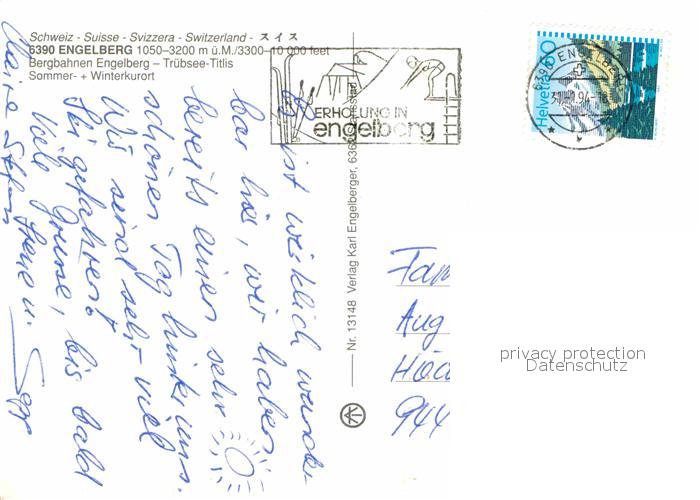 Schweiz - Suisse - Svizzera - Switzerland - スイス
6390 ENGELBERG 1050–3200 m ü.M./3300–10 000 feet
Bergbahnen Engelberg – Trübsee-Titlis
Sommer- + Winterkurort
ERHOLUNG IN
engelberg
6390 ENGELBERG
Helvetia
60
Es ist wirklich wunder-
bar hier, wir haben
bereits einen sehr
schönen Tag hinter uns.
Wir sind sehr viel
Ski gefahren!
Viele Grüsse, bis bald
Irene u. Sepp
Stefan
Nr. 13148 Verlag Karl Engelberger,
Fam
Aug
944
privacy protection
Datenschutz